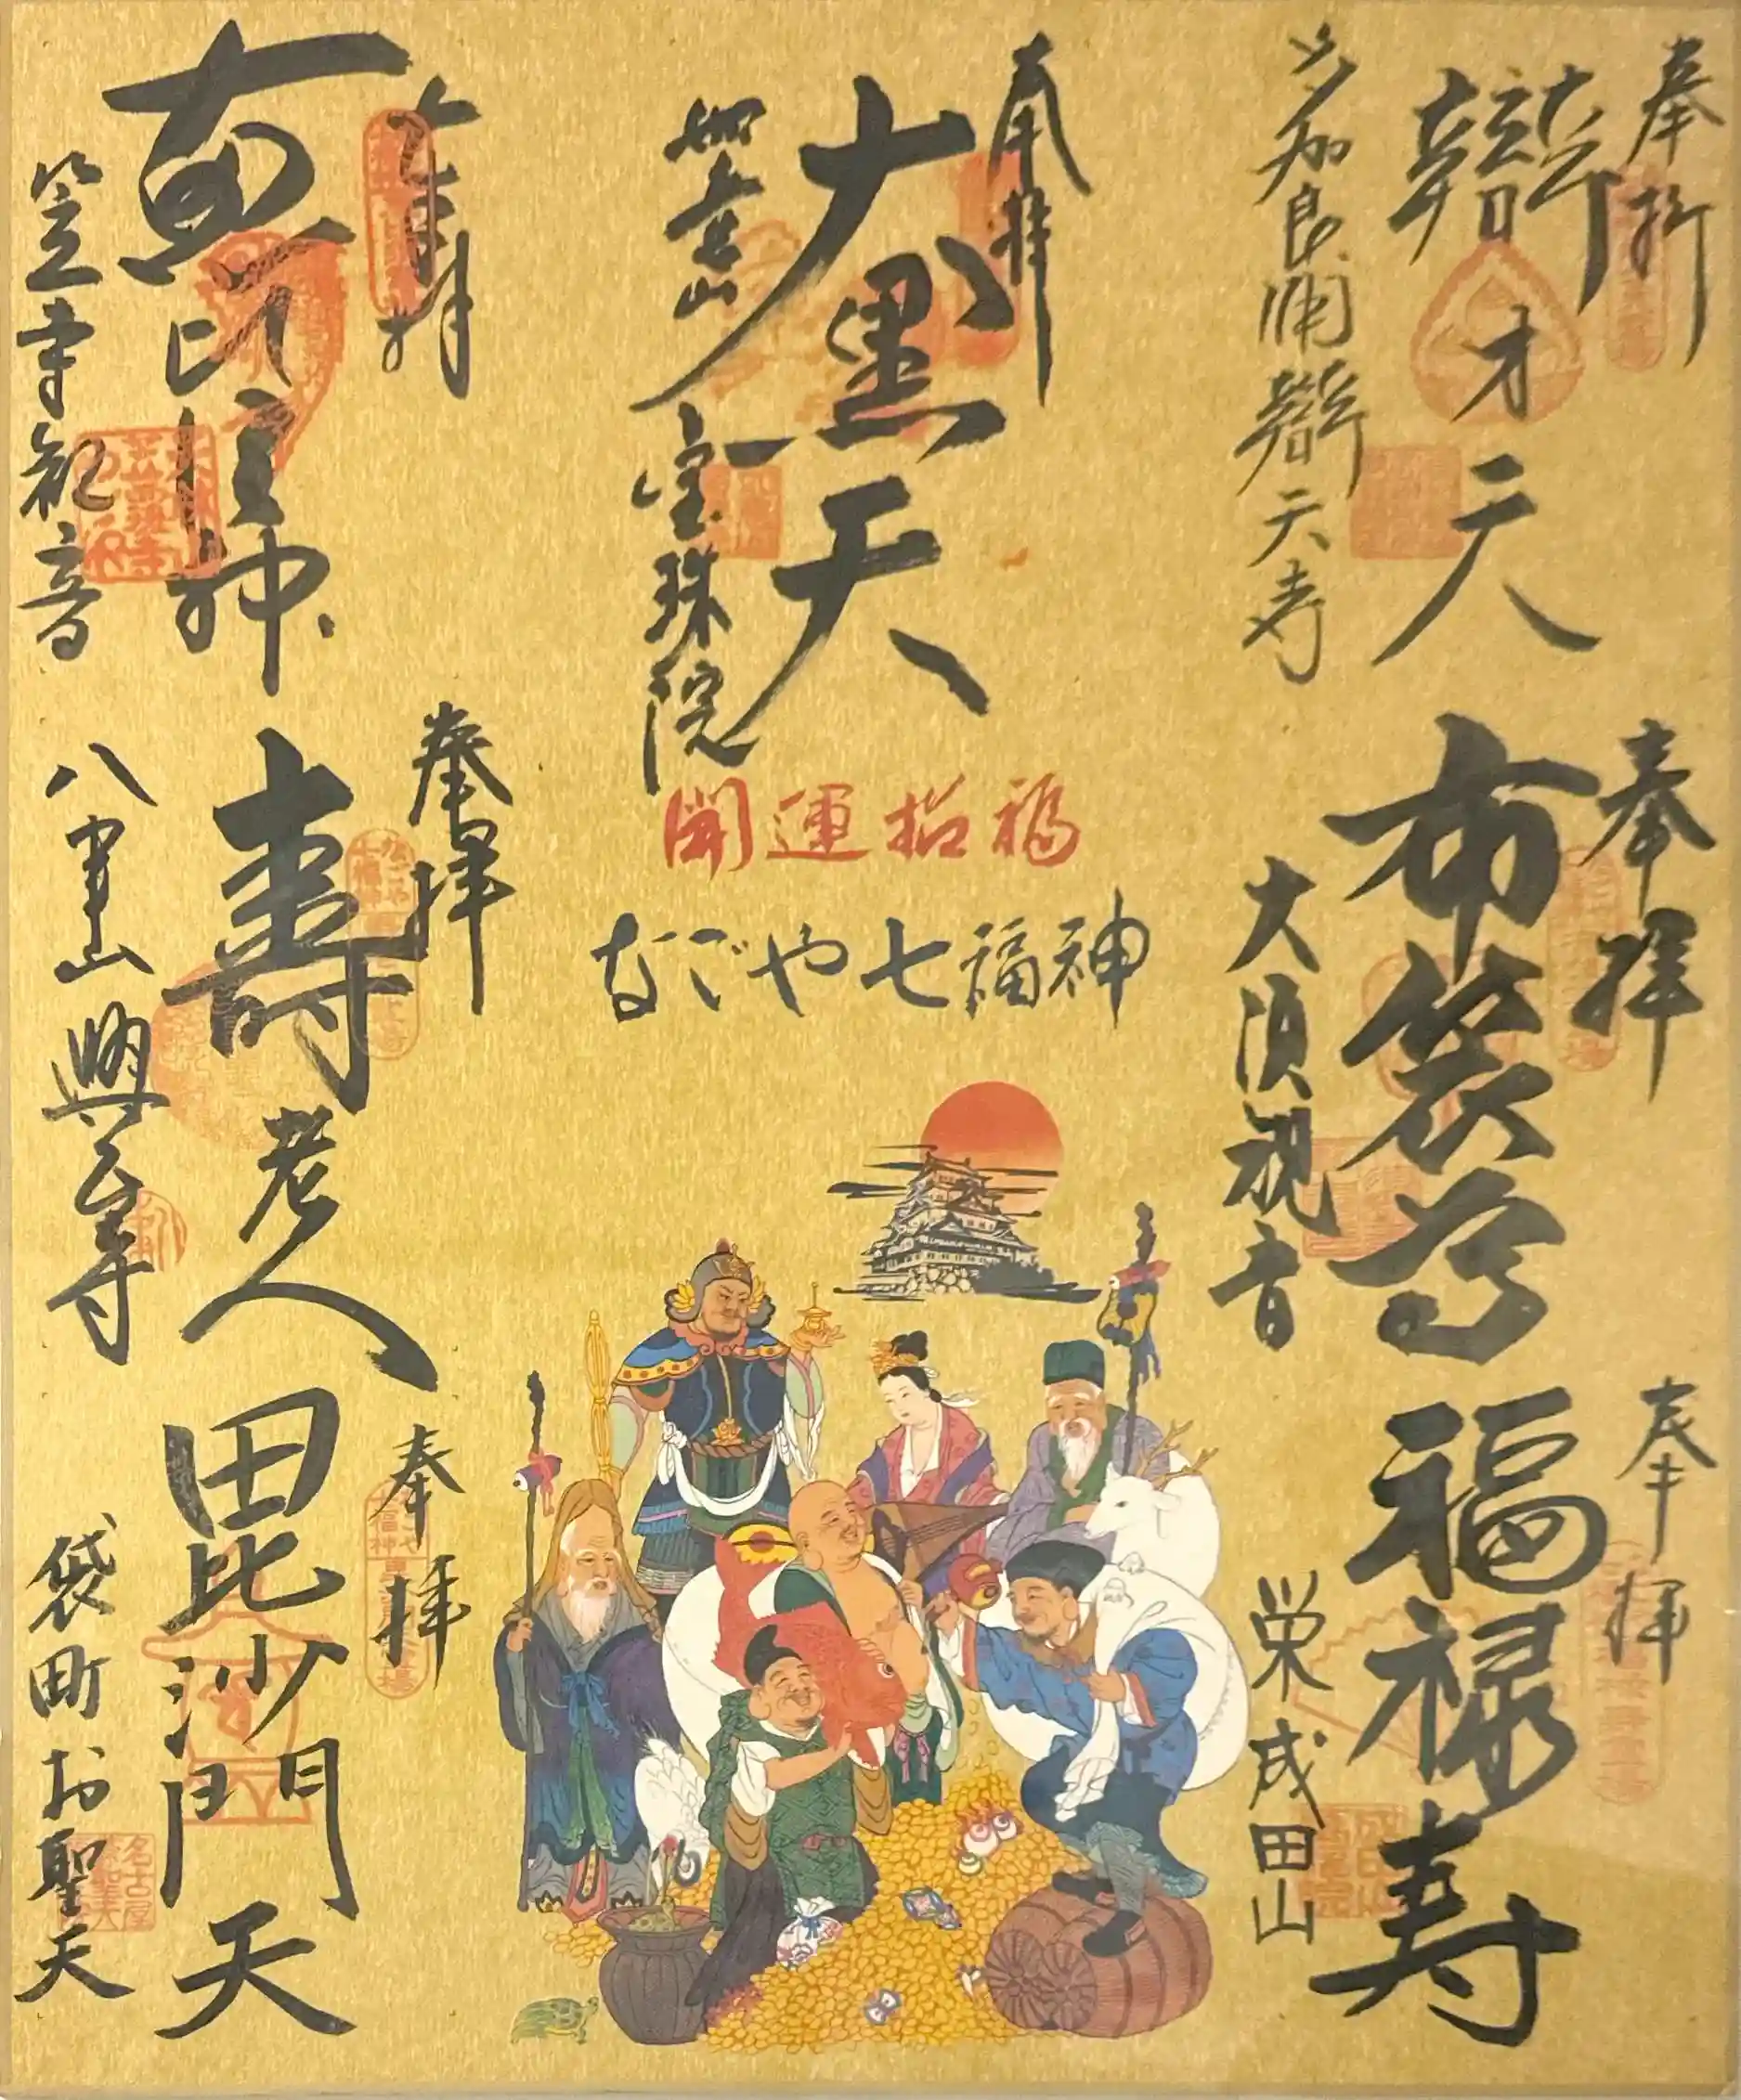 奉拝
辨才天
多加良浦辯天寺
奉拝
大黒天
如意山
宝珠院
奉拝
恵比寿神
笠寺観音
奉拝
布袋尊
大須観音
開運招福
なごや七福神
奉拝
壽老人
八事山興正寺
奉拝
福禄寿
栄成田山
奉拝
毘沙門天
袋町お聖天